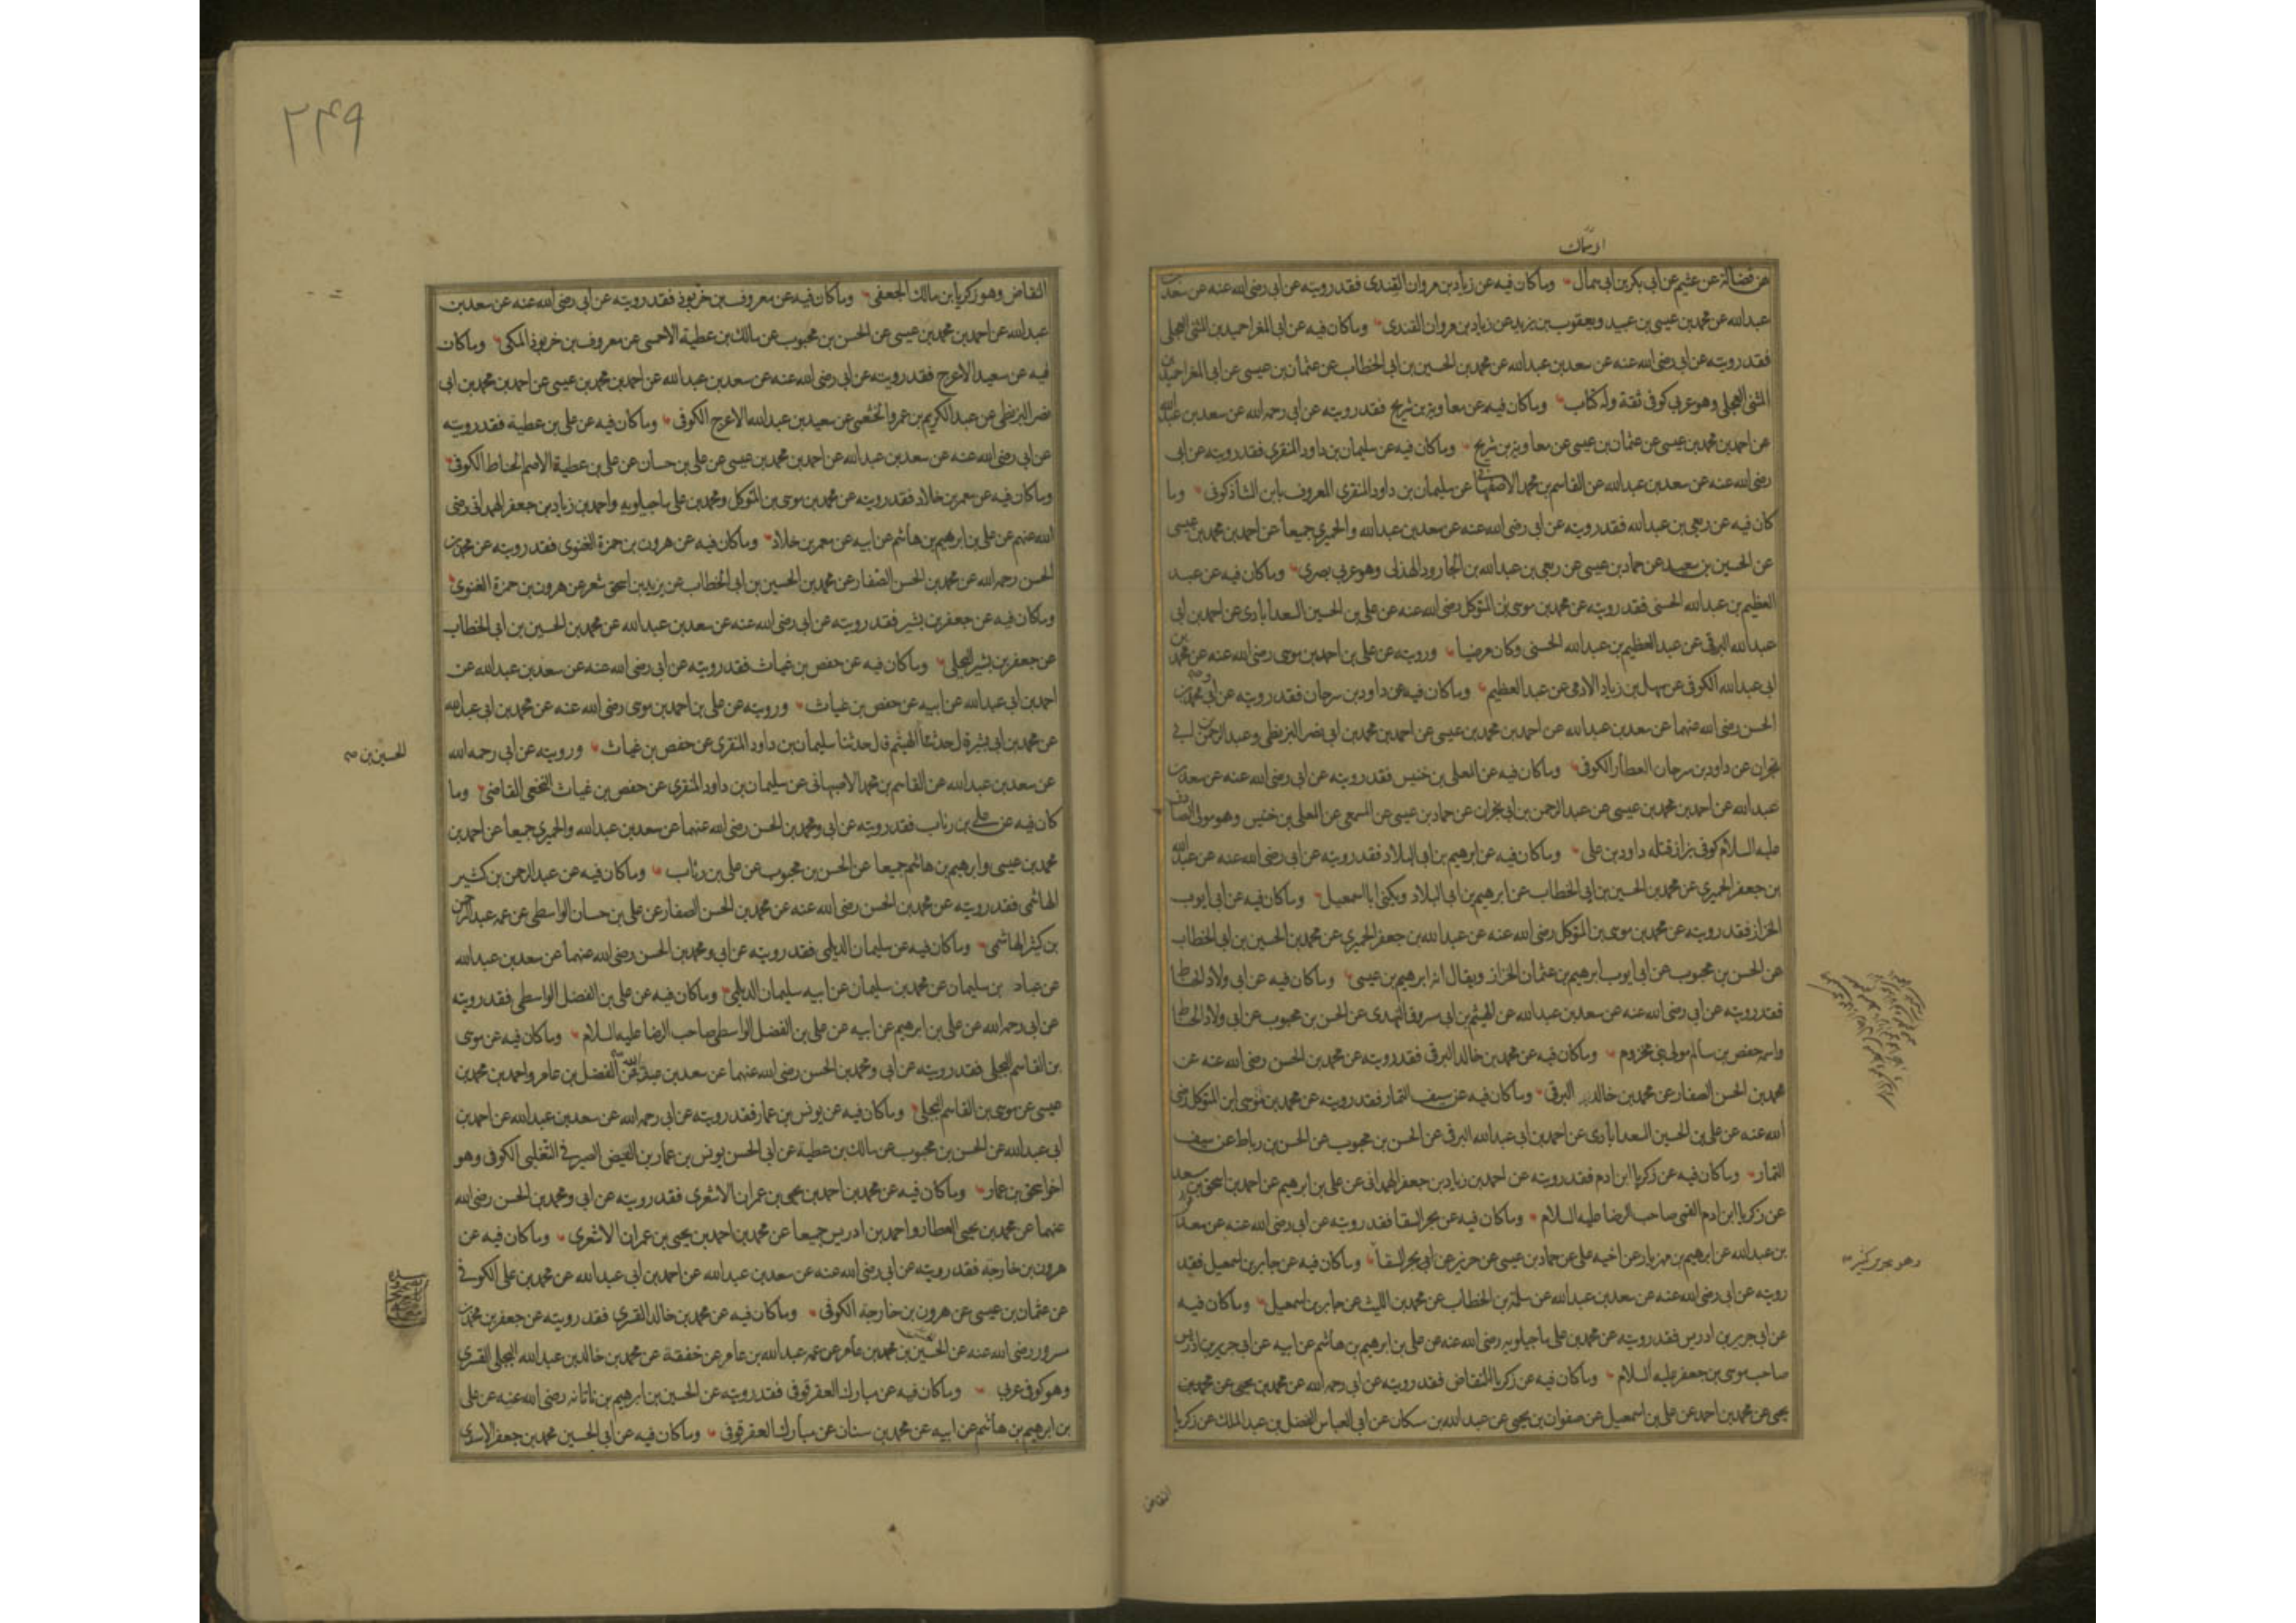 او سماك
عن فضالة عن عثيم عن ابي بكر بن ابي سمال وما كان فيه عن زياد بن مروان القندى فقد رويته عن ابى رضى الله عنه عن سعد بن
عبد الله عن محمد بن عيسى بن عبيد ويعقوب بن يزيد عن زياد بن مروان القندى وما كان فيه عن ابى المغرا حميد بن المثنى العجلى
فقد رويته عن ابى رضى الله عنه عن سعد بن عبد الله عن محمد بن الحسين بن ابى الخطاب عن عثمان بن عيسى عن ابى المغرا حميد بن
المثنى العجلى وهو عربى كوفى ثقة وله كتاب وما كان فيه عن معاوية بن شريح فقد رويته عن ابى رحمه الله عن سعد بن عبد الله
عن احمد بن محمد بن عيسى عن عثمان بن عيسى عن معاوية بن شريح وما كان فيه عن سليمان بن داود المنقرى فقد رويته عن ابى
رضى الله عنه عن سعد بن عبد الله عن القاسم بن محمد الاصفهانى عن سليمان بن داود المنقرى المعروف بابن الشاذكونى وما
كان فيه عن ربعى بن عبد الله فقد رويته عن ابى رضى الله عنه عن سعد بن عبد الله والحميرى جميعا عن احمد بن محمد بن عيسى
عن الحسين بن سعيد عن حماد بن عيسى عن ربعى بن عبد الله بن الجارود الهذلى وهو عربى بصرى وما كان فيه عن عبد
العظيم بن عبد الله الحسنى فقد رويته عن محمد بن موسى بن المتوكل رضى الله عنه عن على بن الحسين السعدابادى عن احمد بن ابى
عبد الله البرقى عن عبد العظيم بن عبد الله الحسنى وكان مرضيا ورويته عن على بن احمد بن موسى رضى الله عنه عن محمد بن
ابى عبد الله الكوفى عن سهل بن زياد الادمى عن عبد العظيم وما كان فيه عن داود بن سرحان فقد رويته عن ابى ومحمد بن
الحسن رضى الله عنهما عن سعد بن عبد الله عن احمد بن محمد بن عيسى عن احمد بن محمد بن ابى نصر البزنطى وعبد الرحمن بن ابى
نجران عن داود بن سرحان العطار الكوفى وما كان فيه عن المعلى بن خنيس فقد رويته عن ابى رضى الله عنه عن سعد بن
عبد الله عن احمد بن محمد بن عيسى عن عبد الرحمن بن ابى نجران عن حماد بن عيسى عن المسمعى عن المعلى بن خنيس وهو مولى الصادق
عليه السلام كوفى بزاز قتله داود بن على وما كان فيه عن ابرهيم بن ابى البلاد فقد رويته عن ابى رضى الله عنه عن عبد الله
بن جعفر الحميرى عن محمد بن الحسين بن ابى الخطاب عن ابرهيم بن ابى البلاد ويكنى ابا اسمعيل وما كان فيه عن ابى ايوب
الخزاز فقد رويته عن محمد بن موسى بن المتوكل رضى الله عنه عن عبد الله بن جعفر الحميرى عن محمد بن الحسين بن ابى الخطاب
عن الحسن بن محبوب عن ابى ايوب ابرهيم بن عثمان الخزاز ويقال انه ابرهيم بن عيسى وما كان فيه عن ابى ولاد الحناط
فقد رويته عن ابى رضى الله عنه عن سعد بن عبد الله عن الهيثم بن ابى مسروق النهدى عن الحسن بن محبوب عن ابى ولاد الحناط
واسمه حفص بن سالم مولى بنى مخزوم وما كان فيه عن محمد بن خالد البرقى فقد رويته عن محمد بن الحسن رضى الله عنه عن
محمد بن الحسن الصفار عن محمد بن خالد البرقى وما كان فيه عن سيف التمار فقد رويته عن محمد بن موسى ابن المتوكل رضى
الله عنه عن على بن الحسين السعدابادى عن احمد بن ابى عبد الله البرقى عن الحسن بن محبوب عن الحسن بن رباط عن سيف
التمار وما كان فيه عن زكريا ابن ادم فقد رويته عن احمد بن زياد بن جعفر الهمدانى عن على بن ابرهيم عن احمد بن اسحق بن سعد
عن زكريا ابن ادم القمى صاحب الرضا عليه السلام وما كان فيه عن بحر السقا فقد رويته عن ابى رضى الله عنه عن سعد
بن عبد الله عن ابرهيم بن مهزيار عن اخيه على عن حماد بن عيسى عن حريز عن ابى بحر السقا وما كان فيه عن جابر بن اسمعيل فقد
وهو بحر بن كنيز صح
رويته عن ابى رضى الله عنه عن سعد بن عبد الله عن سلمة بن الخطاب عن محمد بن الليث عن جابر بن اسمعيل وما كان فيه
عن ابى جرير بن ادريس فقد رويته عن محمد بن على ماجيلويه رضى الله عنه عن على بن ابرهيم بن هاشم عن ابيه عن ابى جرير بن ادريس
صاحب موسى بن جعفر عليه السلام وما كان فيه عن زكريا النقاض فقد رويته عن ابى رحمه الله عن محمد بن يحيى عن محمد بن
يحيى عن محمد بن احمد عن على بن اسمعيل عن صفوان بن يحيى عن عبد الله بن مسكان عن ابى العباس الفضل بن عبد الملك عن زكريا
النقاض
٢٤٩
النقاض وهو زكريا بن مالك الجعفى وما كان فيه عن معروف بن خربوذ فقد رويته عن ابى رضى الله عنه عن سعد بن
عبد الله عن احمد بن محمد بن عيسى عن الحسن بن محبوب عن مالك بن عطية الاحمسى عن معروف بن خربوذ المكى وما كان
فيه عن سعيد الاعرج فقد رويته عن ابى رضى الله عنه عن سعد بن عبد الله عن احمد بن محمد بن عيسى عن احمد بن محمد بن ابى
نصر البزنطى عن عبد الكريم بن عمرو الخثعمى عن سعيد بن عبد الله الاعرج الكوفى وما كان فيه عن على بن عطية فقد رويته
عن ابى رضى الله عنه عن سعد بن عبد الله عن احمد بن محمد بن عيسى عن على بن حسان عن على بن عطية الاصم الحناط الكوفى
وما كان فيه عن معمر بن خلاد فقد رويته عن محمد بن موسى بن المتوكل ومحمد بن على ماجيلويه واحمد بن زياد بن جعفر الهمدانى رضى
الله عنهم عن على بن ابرهيم بن هاشم عن ابيه عن معمر بن خلاد وما كان فيه عن هرون بن حمزة الغنوى فقد رويته عن محمد بن
الحسن رحمه الله عن محمد بن الحسن الصفار عن محمد بن الحسين بن ابى الخطاب عن يزيد بن اسحق شعر عن هرون بن حمزة الغنوى
وما كان فيه عن جعفر بن بشير فقد رويته عن ابى رضى الله عنه عن سعد بن عبد الله عن محمد بن الحسين بن ابى الخطاب
عن جعفر بن بشير البجلى وما كان فيه عن حفص بن غياث فقد رويته عن ابى رضى الله عنه عن سعد بن عبد الله عن
احمد بن ابى عبد الله عن ابيه عن حفص بن غياث ورويته عن على بن احمد بن موسى رضى الله عنه عن محمد بن ابى عبد الله
عن محمد بن ابى بشيرة قال حدثنا الهيثم قال حدثنا سليمان بن داود المنقرى عن حفص بن غياث ورويته عن ابى رحمه الله
الحسين بن صح
عن سعد بن عبد الله عن القاسم بن محمد الاصبهانى عن سليمان بن داود المنقرى عن حفص بن غياث النخعى القاضى وما
كان فيه عن على بن رئاب فقد رويته عن ابى ومحمد بن الحسن رضى الله عنهما عن سعد بن عبد الله والحميرى جميعا عن احمد بن
محمد بن عيسى وابرهيم بن هاشم جميعا عن الحسن بن محبوب عن على بن رئاب وما كان فيه عن عبد الرحمن بن كثير
الهاشمى فقد رويته عن محمد بن الحسن رضى الله عنه عن محمد بن الحسن الصفار عن على بن حسان الواسطى عن عمه عبد الرحمن
بن كثير الهاشمى وما كان فيه عن سليمان الديلمى فقد رويته عن ابى ومحمد بن الحسن رضى الله عنهما عن سعد بن عبد الله
عن عباد بن سليمان عن محمد بن سليمان عن ابيه سليمان الديلمى وما كان فيه عن على بن الفضل الواسطى فقد رويته
عن ابى رحمه الله عن على بن ابرهيم عن ابيه عن على بن الفضل الواسطى صاحب الرضا عليه السلام وما كان فيه عن موسى
بن القاسم البجلى فقد رويته عن ابى ومحمد بن الحسن رضى الله عنهما عن سعد بن عبد الله عن الفضل بن عامر واحمد بن محمد بن
عيسى عن موسى بن القاسم البجلى وما كان فيه عن يونس بن عمار فقد رويته عن ابى رحمه الله عن سعد بن عبد الله عن احمد بن
ابى عبد الله عن الحسن بن محبوب عن مالك بن عطية عن ابى الحسن يونس بن عمار بن الفيض الصيرفى التغلبى الكوفى وهو
اخو اسحق بن عمار وما كان فيه عن محمد بن احمد بن يحيى بن عمران الاشعرى فقد رويته عن ابى ومحمد بن الحسن رضى الله
عنهما عن محمد بن يحيى العطار واحمد بن ادريس جميعا عن محمد بن احمد بن يحيى بن عمران الاشعرى وما كان فيه عن
هرون بن خارجة فقد رويته عن ابى رضى الله عنه عن سعد بن عبد الله عن احمد بن ابى عبد الله عن محمد بن على الكوفى
عن عثمان بن عيسى عن هرون بن خارجة الكوفى وما كان فيه عن محمد بن خالد القسرى فقد رويته عن جعفر بن محمد بن
مسرور رضى الله عنه عن الحسين بن محمد بن عامر عن عمه عبد الله بن عامر عن خفقة عن محمد بن خالد بن عبد الله البجلى القسرى
وهو كوفى عربى وما كان فيه عن مبارك العقرقوفى فقد رويته عن الحسين بن ابرهيم بن ناتانه رضى الله عنه عن على
بن ابرهيم بن هاشم عن ابيه عن محمد بن سنان عن مبارك العقرقوفى وما كان فيه عن ابى الحسين محمد بن جعفر الاسدى